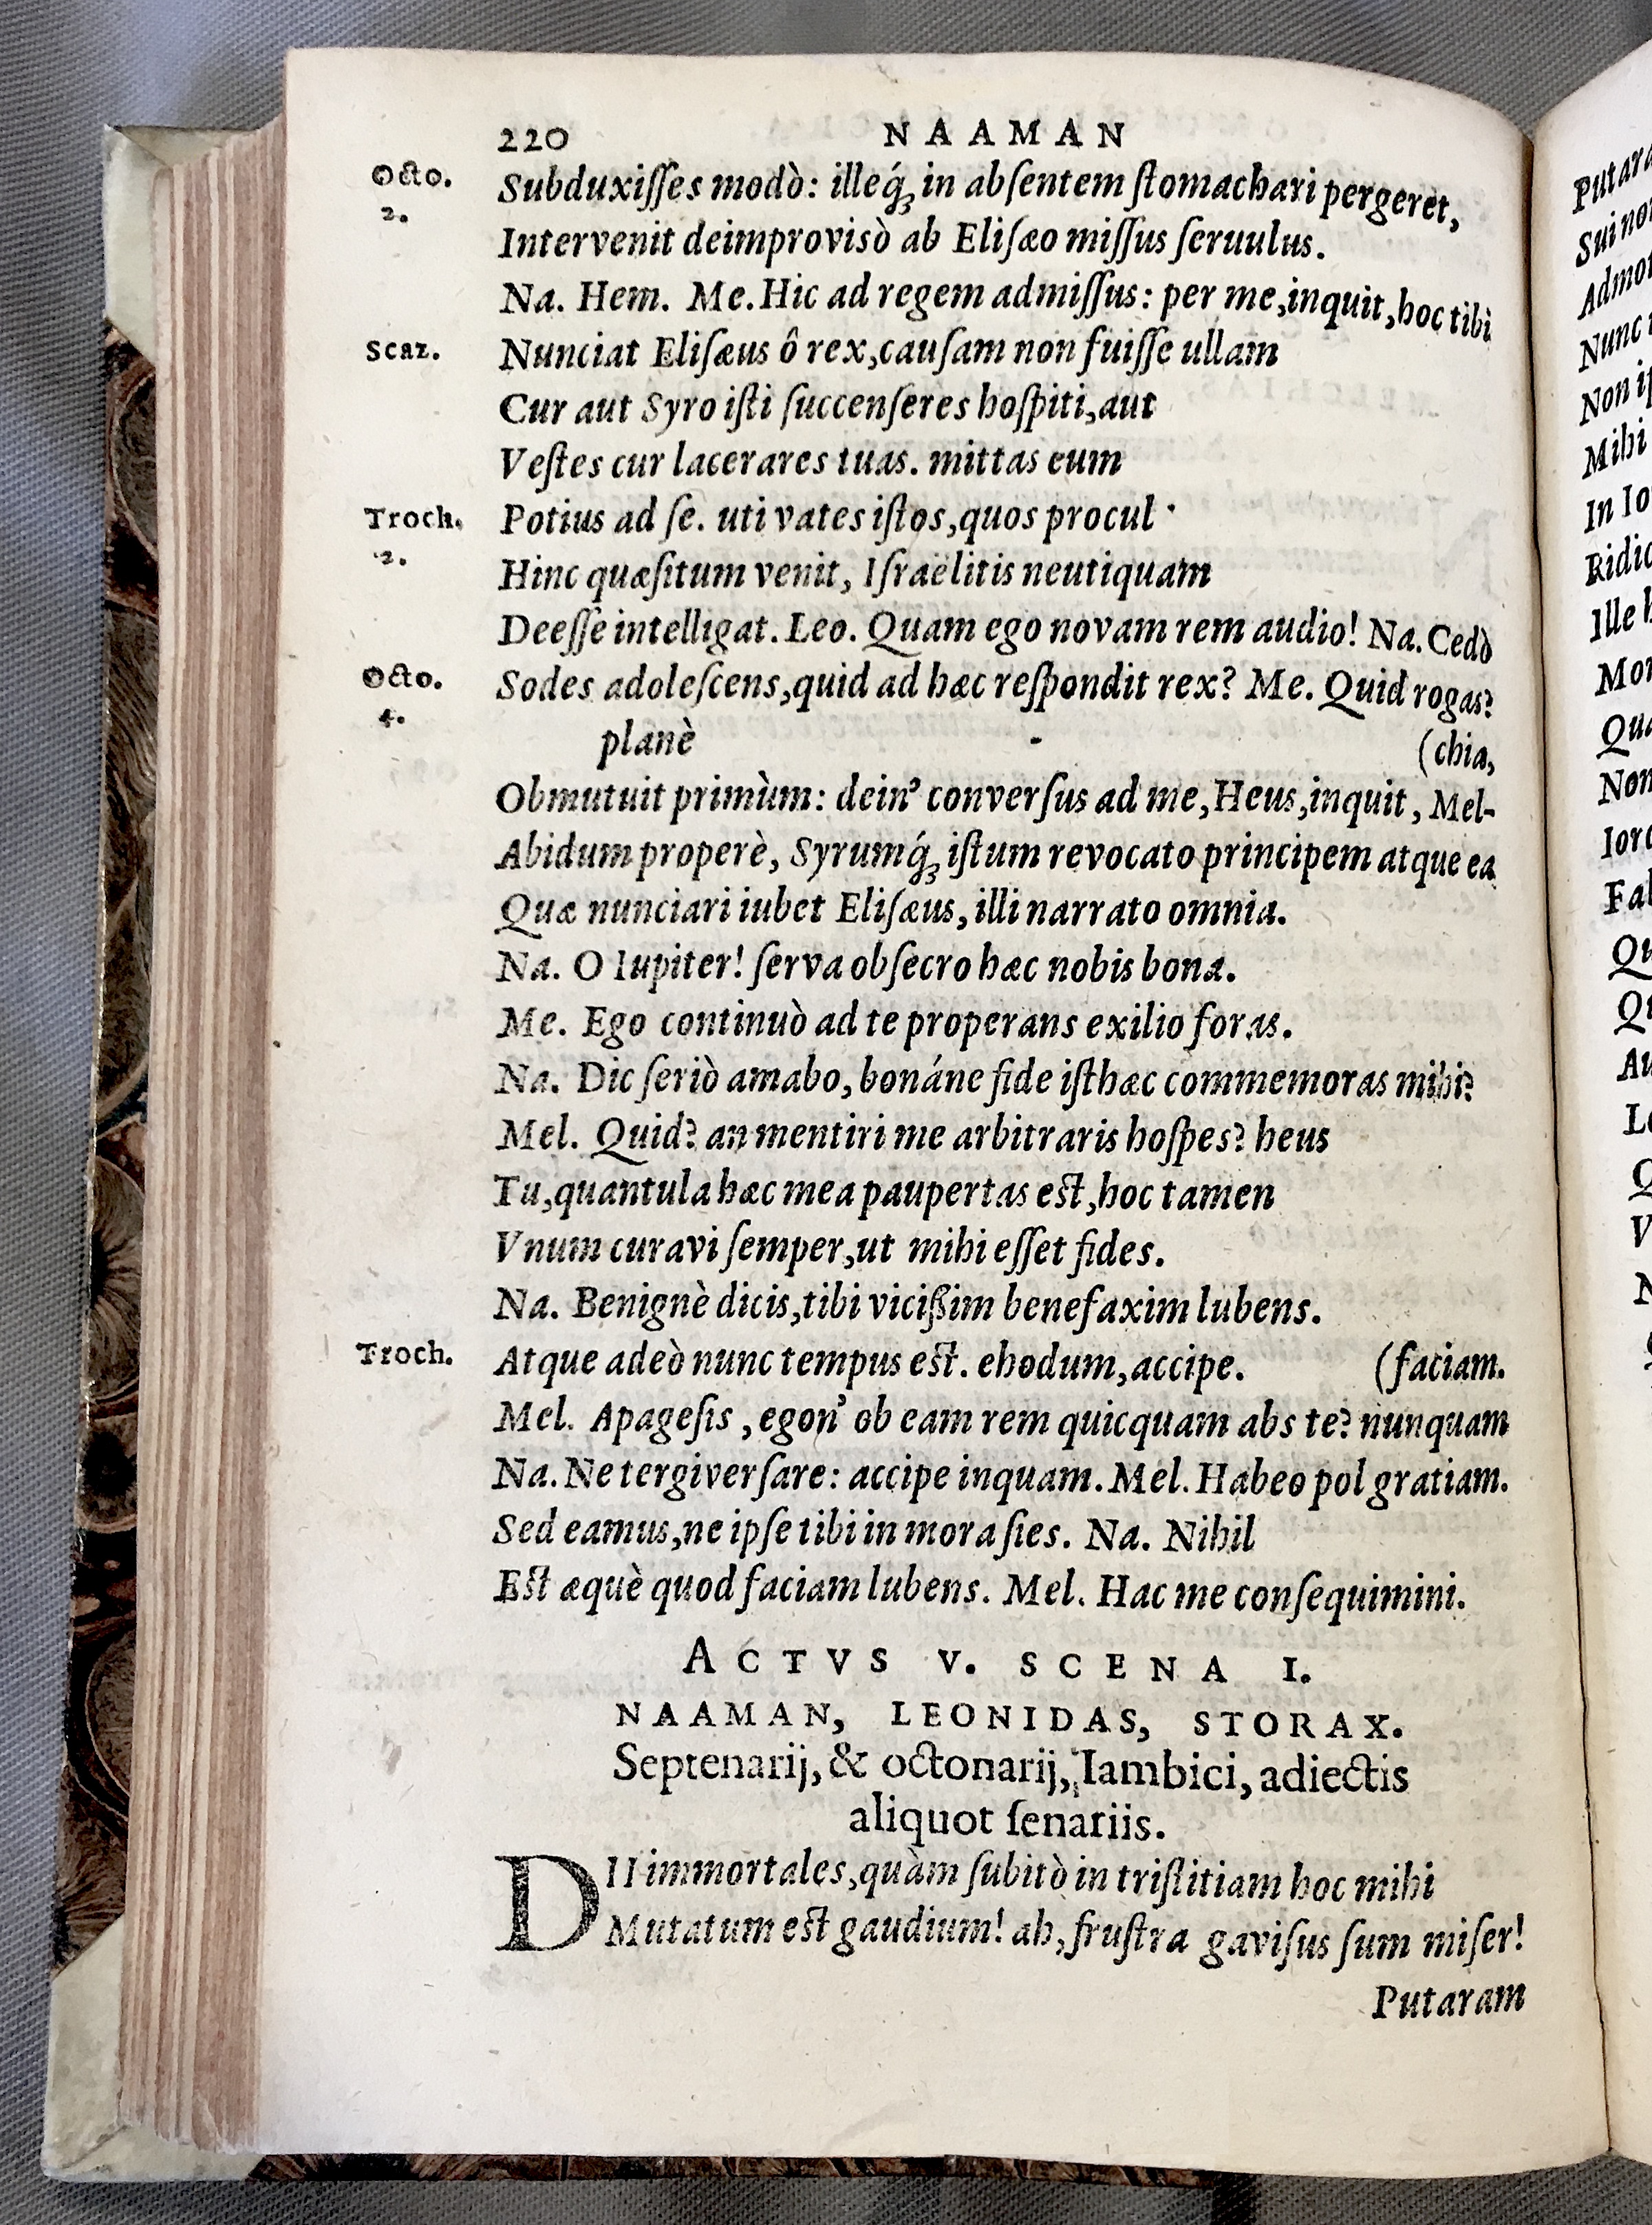 220 NAAMAN
Octo. 2. Subduxiſſes modò: illeq́ꝫ in abſentem ſtomachari pergeret,
Intervenit deimprovisò ab Eliſæo miſſus ſeruulus.
Na. Hem. Me. Hic ad regem admiſſus: per me, inquit, hoc tibi
Scaz. Nunciat Eliſæus ô rex, cauſam non fuiſſe ullam
Cur aut Syro iſti ſuccenſeres hoſpiti, aut
Veſtes cur lacerares tuas. mittas eum
Troch. 2. Potius ad ſe. uti vates iſtos, quos procul
Hinc quæſitum venit, Iſraëlitis neutiquam
Deeſſe intelligat. Leo. Quam ego novam rem audio! Na. Cedò
Octo. 4. Sodes adoleſcens, quid ad hæc reſpondit rex? Me. Quid rogas?
planè (chia,
Obmutuit primùm: dein' converſus ad me, Heus, inquit, Mel-
Abidum properè, Syrumq́ꝫ iſtum revocato principem atque ea
Quæ nunciari iubet Eliſæus, illi narrato omnia.
Na. O Iupiter! ſerva obſecro hæc nobis bona.
Me. Ego continuò ad te properans exilio foras.
Na. Dic ſeriò amabo, bonáne fide iſthæc commemoras mihi?
Mel. Quid? an mentiri me arbitraris hoſpes? heus
Tu, quantula hæc mea paupertas est, hoc tamen
Vnum curavi ſemper, ut mihi eſſet fides.
Na. Benignè dicis, tibi vicißim benefaxim lubens.
Troch. Atque adeò nunc tempus est. ehodum, accipe. (faciam.
Mel. Apageſis, egon' ob eam rem quicquam abs te? nunquam
Na. Ne tergiverſare: accipe inquam. Mel. Habeo pol gratiam.
Sed eamus, ne ipſe tibi in mora ſies. Na. Nihil
Est æquè quod faciam lubens. Mel. Hac me conſequimini.
ACTVS V. SCENA I.
NAAMAN, LEONIDAS, STORAX.
Septenarij, & octonarij, Iambici, adiectis
aliquot ſenariis.
DII immortales, quàm ſubitò in triſtitiam hoc mihi
Mutatum est gaudium! ah, fruſtra gaviſus ſum miſer!
Putaram